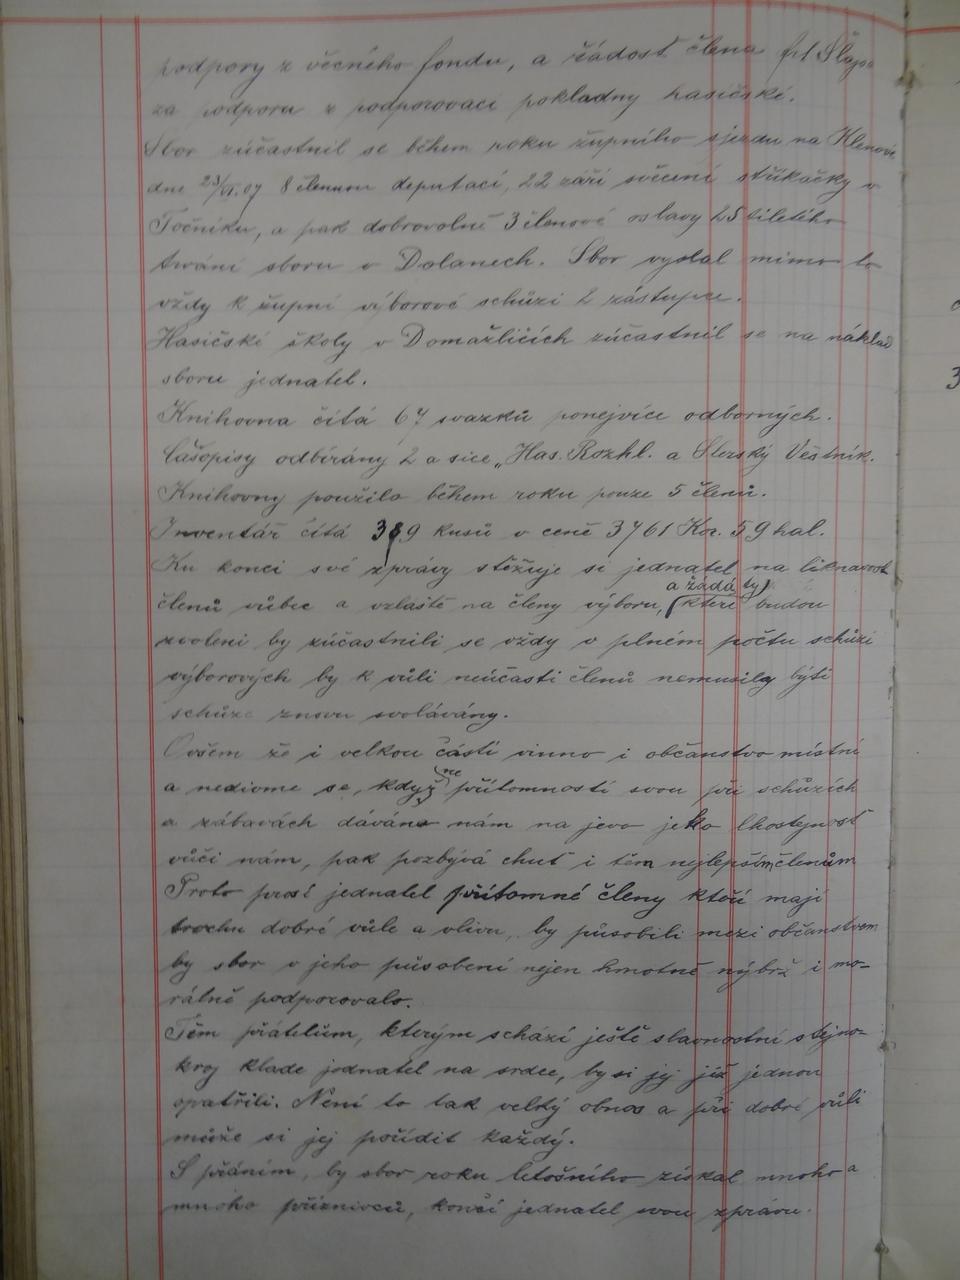 podpory z věcného fondu, a žádost člena frt Šlajs
za podporu z podporovací pokladny hasičské.
Sbor zúčastnil se během roku župního sjezdu na Klenové
dne 23/VI.07 8 člennou deputací, 22 září svěcení stříkačky v
Točníku, a pak dobrovolně 3 členové oslavy 25tiletého
trvání sboru v Dolanech. Sbor vyslal mimo to
vždy k župní výborové schůzi 2 zástupce.
Hasičské školy v Domažličích zúčastnil se na náklad
sboru jednatel.
Knihovna čítá 67 svazků ponejvíce odborných.
Časopisy odbírány 2 a sice „Has. Rozhl. a Slezský Věstník.
Knihovny použilo během roku pouze 5 členů.
Inventář čítá 389 kusů v ceně 3761 Kor. 59 hal.
Ku konci své zprávy stěžuje si jednatel na liknavost
a žádá ty)
členů vůbec a vzláště na členy výboru, (kteří budou
zvoleni by zúčastnili se vždy v plném počtu schůzí
výborových by k vůli neúčasti členů nemusily býti
schůze znovu svolávány.
Ovšem že i velkou částí vinno i občanstvo místní
a nedivme se, když ne přítomností svou při schůzích
a zábavách dáváno nám na jevo jeho lhostejnost
vůči nám, pak pozbývá chuť i těm nejlepším členům
Proto prosí jednatel přítomné členy kteří mají
trochu dobré vůle a vlivu, by působili mezi občanstvem
by sbor v jeho působení nejen hmotně nýbrž i mo-
rálně podporovalo.
Těm přátelům, kterým schází ještě slavnostní stejno-
kroj klade jednatel na srdce, by si jej již jednou
opatřili. Není to tak velký obnos a při dobré vůli
může si jej pořídit každý.
S přáním, by sbor roku letošního získal mnoho a
mnoho příznivců, končí jednatel svou zprávu.